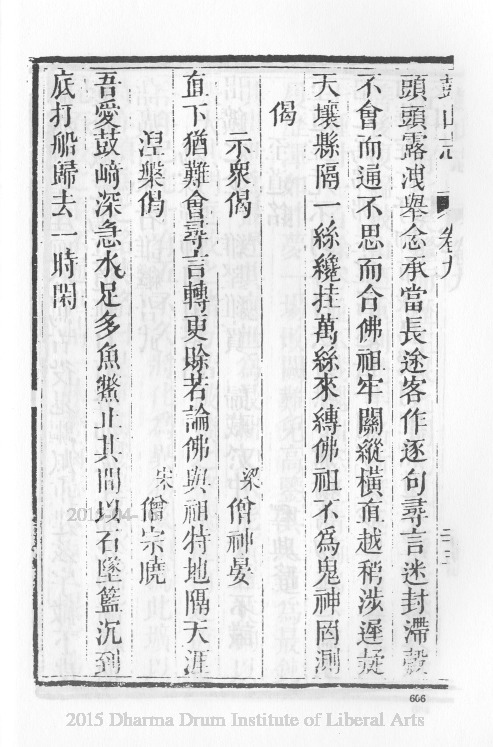 鼓山志 卷九
頭頭露洩舉念承當長途客作逐句尋言迷封滯殼
不會而通不思而合佛祖牢關縱橫直越稍涉遲疑
天壤縣隔一絲纔挂萬絲來縛佛祖不為鬼神罔測
偈
示衆偈 梁 僧神晏
直下猶難會尋言轉更賒若論佛與祖特地隔天涯
涅槃偈 宋 僧宗曉
吾愛鼓崎深急水足多魚鱉止其間以石墜籃沉到
底打船歸去一時閑
2015
606
2015 Dharma Drum Institute of Liberal Arts